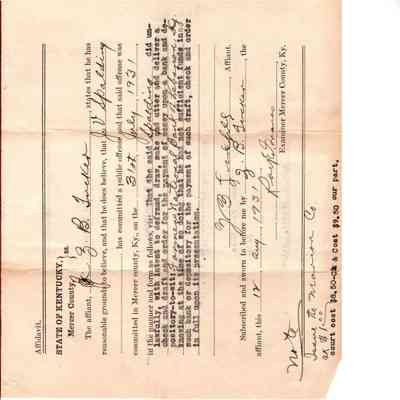 Affidavit.
STATE OF KENTUCKY, } ss.
Mercer County,
The affiant, Z. B. Tucker, states that he has
reasonable grounds to believe, and that he does believe, that J. V. Spalding
has committed a public offense and that said offense was
committed in Mercer county, Ky., on the 31st July, 1931
in the manner and form as follows, viz: That the said Spalding did un-
lawfully, with intent to defraud, draw, make and utter and deliver a
check and draft and order for the payment of money upon a bank and de-
pository-to-wit: Farmers National Bank of Lebanon, Ky
knowing at the time of so doing that he had not sufficient funds in
such bank or depository for the payment of such draft, check and order
in full upon its presentation.
Affiant.
Subscribed and sworn to before me by Z. B. Tucker, the
affiant, this 12 Aug 1931
Examiner Mercer County, Ky.
Note
Issue to Marion Co
court cost $8.50 & Cost $9.50 our part.